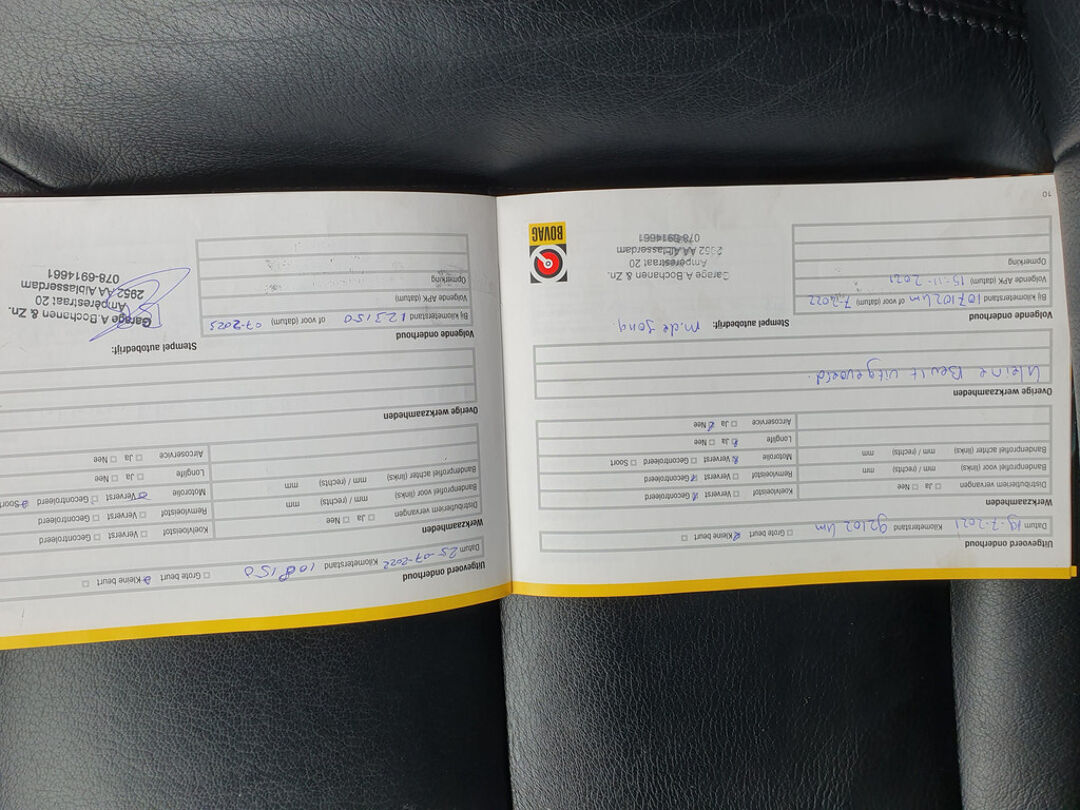 Uitgevoerd onderhoud
Datum 19-7-2021 Kilometerstand 92102 km Grote beurt Kleine beurt
Werkzaamheden
Distributieriem vervangen Ja Nee
Bandenprofiel voor (links) mm / (rechts) mm
Bandenprofiel achter (links) mm / (rechts) mm
Koelvloeistof Ververst Gecontroleerd
Remvloeistof Ververst Gecontroleerd
Motorolie Ververst Gecontroleerd Soort
Longlife Ja Nee
Aircoservice Ja Nee
Overige werkzaamheden
Kleine Beurt uitgevoerd.
Volgende onderhoud
Bij kilometerstand 107102 km of voor (datum) 7-2022
Volgende APK (datum) 15-11-2021
Opmerking
Stempel autobedrijf: M. de Jong
Garage A.Bochanen & Zn.
Ampèrestraat 20
2952 AA Alblasserdam
078-6914661
BOVAG
10
Uitgevoerd onderhoud
Datum 25-07-2022 Kilometerstand 108150 Grote beurt Kleine beurt
Werkzaamheden
Distributieriem vervangen Ja Nee
Bandenprofiel voor (links) mm / (rechts) mm
Bandenprofiel achter (links) mm / (rechts) mm
Koelvloeistof Ververst Gecontroleerd
Remvloeistof Ververst Gecontroleerd
Motorolie Ververst Gecontroleerd Soort
Longlife Ja Nee
Aircoservice Ja Nee
Overige werkzaamheden
Volgende onderhoud
Bij kilometerstand 123150 of voor (datum) 07-2023
Volgende APK (datum)
Opmerking
Stempel autobedrijf:
Garage A.Bochanen & Zn.
Ampèrestraat 20
2952 AA Alblasserdam
078-6914661